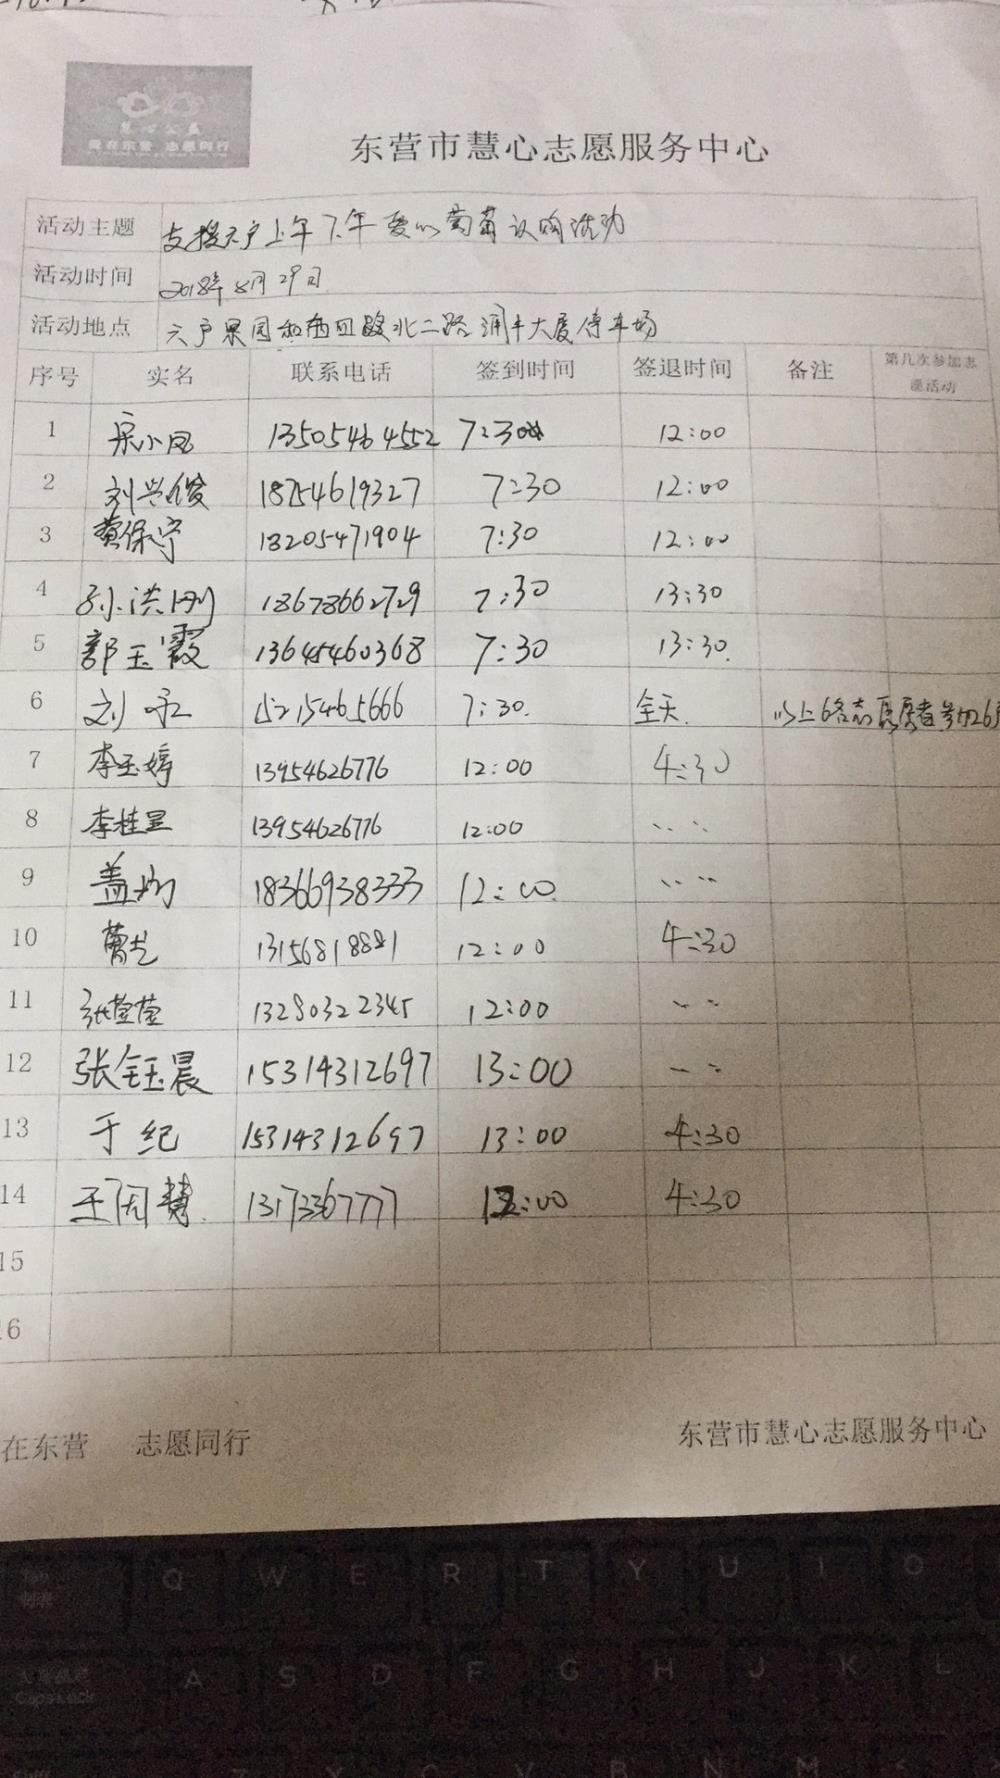 慧心公益
爱在东营 志愿同行
东营市慧心志愿服务中心
活动主题 支援六户上午下午爱心葡萄认购活动
活动时间 2018年8月29日
活动地点 六户果园和西四路北二路润丰大厦停车场
序号 实名 联系电话 签到时间 签退时间 备注 第几次参加志愿活动
1 宋小凤 13505464552 7:30 12:00
2 刘兴俊 18754619327 7:30 12:00
3 黄保宁 18205471904 7:30 12:00
4 孙洪刚 18678662729 7:30 13:30
5 郭玉霞 13645460368 7:30 13:30
6 刘 15215465666 7:30 全天 以上6名志愿者
7 李玉婷 13954626776 12:00 4:30
8 李桂昱 13954626776 12:00
9 盖 18366938333 12:00
10 13156818881 12:00 4:30
11 张莹莹 13280322345 12:00
12 张钰晨 15314312697 13:00
13 于纪 15314312697 13:00 4:30
14 王闵慧 13173367777 12:00 4:30
15
16
在东营 志愿同行 东营市慧心志愿服务中心
Tab
Q W E R T Y U I O
Caps Lock
A S D F G H J K L
Shift
Z X C V B N M